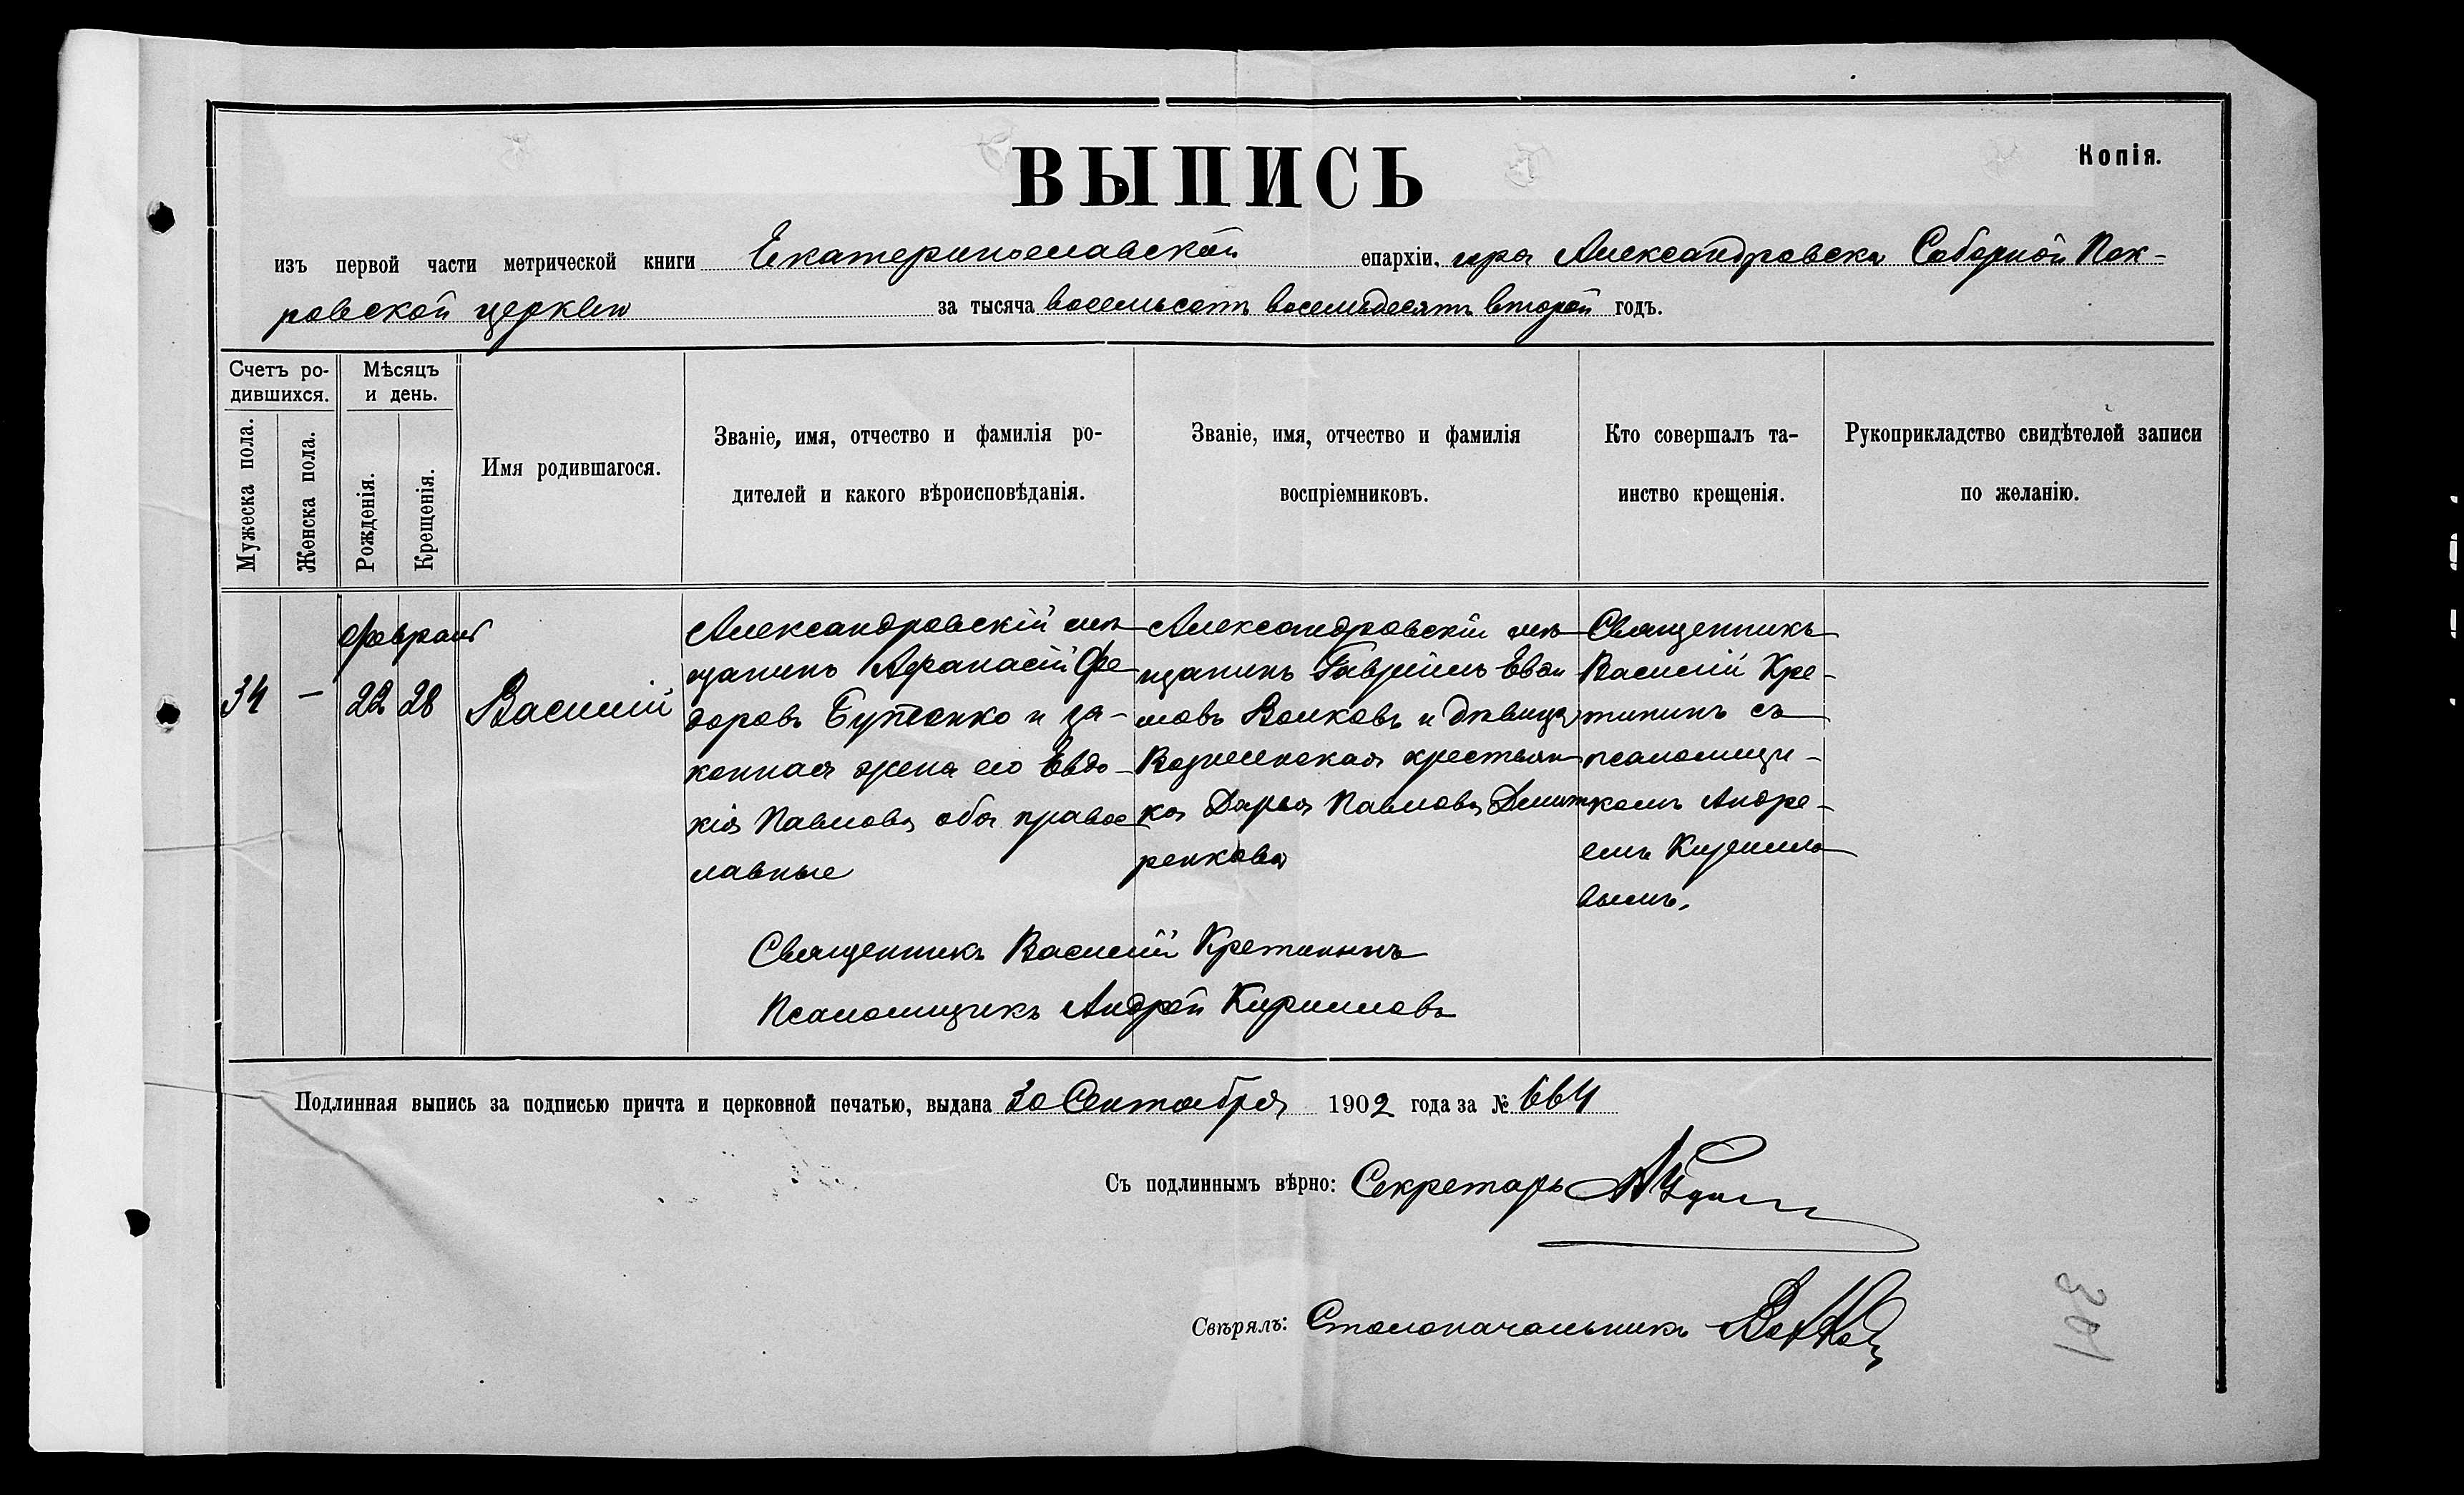 Копія.
ВЫПИСЬ
изъ первой части метрической книги Екатеринославской епархіи, гора Александровска Соборной Пок-
ровской церкви за тысяча восемьсотъ восемьдесятъ второй годъ.
Счетъ ро-
дившихся.
Мужеска пола.
Женска пола.
Мѣсяцъ
и день.
Рожденія.
Крещенія.
Имя родившагося.
Званіе, имя, отчество и фамилія ро-
дителей и какого вѣроисповѣданія.
Званіе, имя, отчество и фамилія
воспріемниковъ.
Кто совершалъ та-
инство крещенія.
Рукоприкладство свидѣтелей записи
по желанію.
34
—
Февраля
22 28
Василій
Александровскій мѣ
щанинъ Афанасій Фе
доровъ Бутенко и за-
конная жена его Евдо-
кія Павлова оба правос
лавные
Александровскій мѣ
щанинъ Гавріилъ Евѳи
мовъ Волковъ и дѣвица
Вознесенская крестьян
ка Дарья Павлова Дмит
ренкова
Священникъ
Василій Кре-
тининъ съ
псаломщи-
комъ Андре-
емъ Кирилло
вымъ.
Священникъ Василій Кретининъ
Псаломщикъ Андрей Кирилловъ
Подлинная выпись за подписью причта и церковной печатью, выдана 30 Сентября 1902 года за № 664
Съ подлиннымъ вѣрно: Секретарь
Свѣрялъ: Столоначальникъ
301